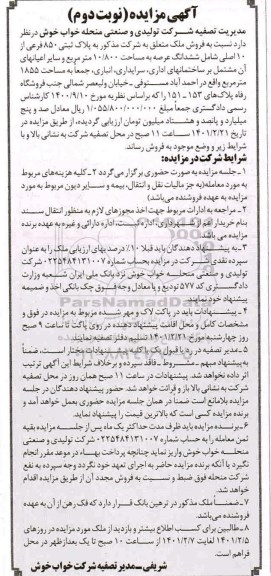 آگهی مزایده (نوبت دوم)
مدیریت تصفیه شرکت تولیدی و صنعتی منحله خواب خوش در نظر
دارد نسبت به فروش ملک متعلق به شرکت مذکور به پلاک ثبتی ۸۵۰ فرعی از
۱۰ اصلی شامل ششدانگ عرصه به مساحت ۱۰/۸۰۰ متر مربع و سایر اعیانهای
آن مشتمل بر ساختمانهای اداری، سرایداری، انباری، جمعاً به مساحت ۱۸۵۵
مترمربع واقع در احمد آباد مستوفی - خیابان ولیعصر شمالی جنب فروشگاه
رفاه پلاک‌های ۱۵۳ - ۱۵۱ را که براساس نظریه مورخ ۱۴۰۰/۹/۱۰ کارشناس
رسمی دادگستری جمعاً مبلغ ۱/۰۵۵/۸۰۰/۰۰۰/۰۰۰ ریال معادل صد و پنج
میلیارد و پانصد و هشتاد میلیون تومان ارزیابی گردیده، از طریق مزایده در
تاریخ ۱۴۰۱/۲/۲۱ ساعت ۱۱ صبح در محل تصفیه شرکت به نشانی بالا و با
شرایط زیر و وضع موجود به فروش رساند.
شرایط شرکت در مزایده:
۱ - جلسه مزایده به صورت حضوری برگزار می گردد ۲ - کلیه هزینه‌های مربوط
به مورد معامله (به جز مالیات نقل و انتقال، بیمه و سایر دیون مربوط به مورد
مزایده به عهده فروشنده می‌باشد)
۲ - مراجعه به ادارات مربوط جهت اخذ مجوزهای لازم به منظور انتقال سند
بنام خریدار اعم از شهرداری، اداره ثبت، اداره دارائی و غیره به عهده برنده
مزایده می باشد.
۳ - به پیشنهاد دهندگان باید قبلا ۱۰ درصد بهای ارزیابی ملک را به عنوان
سپرده نقدی شرکت در مزایده بحساب شماره ۰۲۲۵۴۸۴۱۳۱۰۰۷ شرکت
تولیدی و صنعتی منحله خواب خوش نزد بانک ملی ایران شعبه وزارت
دادگستری کد ۵۷۷ تودیع و یا معادل وجه فوق چک بانکی اخذ و ضمیمه
پیشنهاد خود نمایند.
۴ - پیشنهادات باید در پاکت لاک و مهر شده مربوط به مزایده در فوق و
مشخصات کامل و محل اقامت پیشنهاد دهنده در روی پاکت تا ساعت ۹ صبح
روز چهارشنبه مورخ ۱۴۰۱/۲/۲۱ تسلیم دفتر تصفیه نمایند.
۵ - مدیر تصفیه در رد یا قبول یک یا کلیه پیشنهادات مختار است، ضمناً
به پیشنهاد مبهم - مشروط - فاقد سپرده و برخلاف شرایط این آگهی ترتیب
اثر داده نخواهد شد. پیشنهادات در ساعت ۱۱ صبح همان روز در محل تصفیه
شرکت به نشانی بالا باز و قرائت خواهد شد. حضور پیشنهاد دهندگان در جلسه
مزایده بلامانع است ضمنا در همان جلسه مزایده حضوری بعمل خواهد آمد و
برنده مزایده کسی است که بالاترین قیمت را پیشنهاد نماید.
۶ - برنده مزایده باید ظرف مدت حداکثر یک ماه پس از جلسه مزایده بقیه
ثمن معامله را به حساب شماره ۰۲۲۵۴۸۴۱۳۱۰۰۷ شرکت تولیدی و صنعتی
منحله خواب خوش واریز نماید چنانچه پرداخت بهاء در موعد مقرر انجام
نگیرد یا آنکه برنده مزایده حاضر به اجرای تعهد خود نگردد وجه سپرده به نفع
شرکت منحله فوق ضبط و نسبت به فروش مجدد آن از طریق مزایده اقدام
خواهد شد.
۷ - ضمناً ملک مذکور در ترهین بانک قرار دارد که فک رهن از آن به عهده
فروشنده می‌باشد.
۸ - طالبین برای کسب اطلاع بیشتر و بازدید از ملک مورد مزایده در روزهای
۱۴۰۱/۲/۵ لغایت ۱۴۰۱/۲/۷ از ساعت ۱۰ صبح تا یک بعدازظهر در محل
فراهم است.
شریفی - مدیر تصفیه شرکت خواب خوش